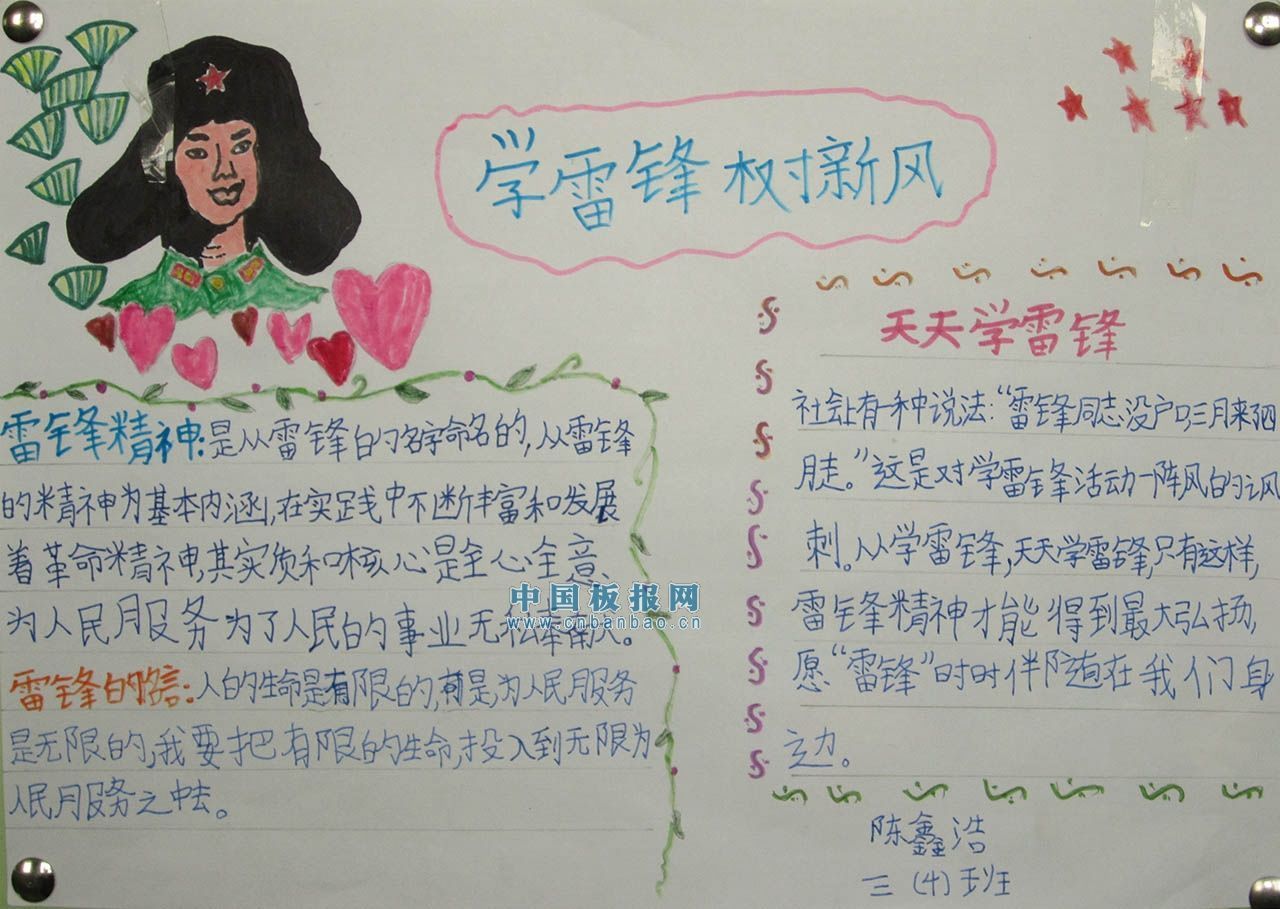 学雷锋 树新风
雷锋精神:是从雷锋的名字命名的,从雷锋
的精神为基本内涵,在实践中不断丰富和发展
着革命精神,其实质和核心是全心全意、
为人民服务为了人民的事业无私奉献。
雷锋的信:人的生命是有限的,有是,为人民服务
是无限的,我要把有限的生命,投入到无限为
人民服务之中去。
天天学雷锋
社会上有一种说法:“雷锋同志没户口,三月来四
月走。”这是对学雷锋活动一阵风的讽
刺。从学雷锋,天天学雷锋,只有这样,
雷锋精神才能得到最大弘扬,
愿“雷锋”时时伴随在我们身
边。
陈鑫浩
三(4)班
中国板报网
www.cnbanbao.cn